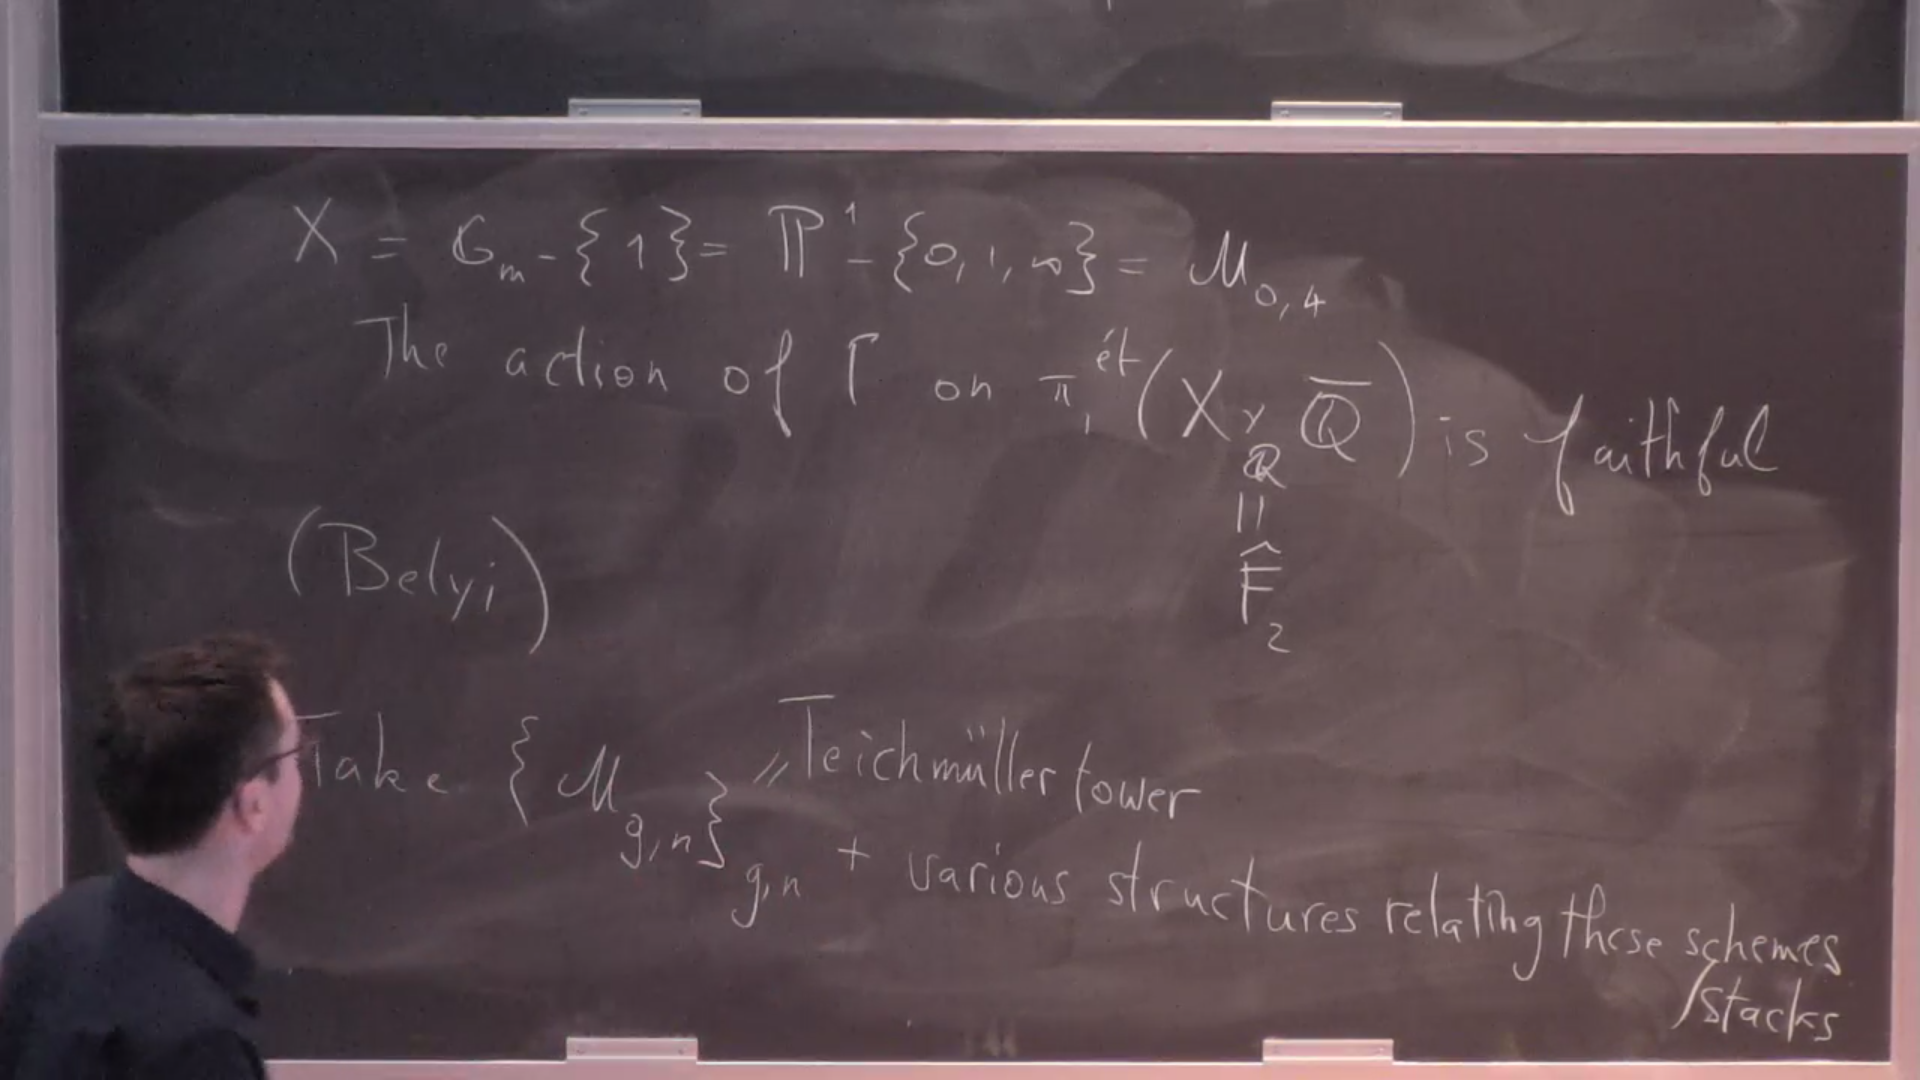 X = G_m - {1} = ℙ¹ - {0, 1, ∞} = M_{0,4}
The action of Γ on π₁^{ét}(X ×_ℚ ℚ̄) is faithful
||
F̂₂
(Belyi)
Take {M_{g,n}}_{g,n} "Teichmüller tower
+ various structures relating these schemes
/stacks